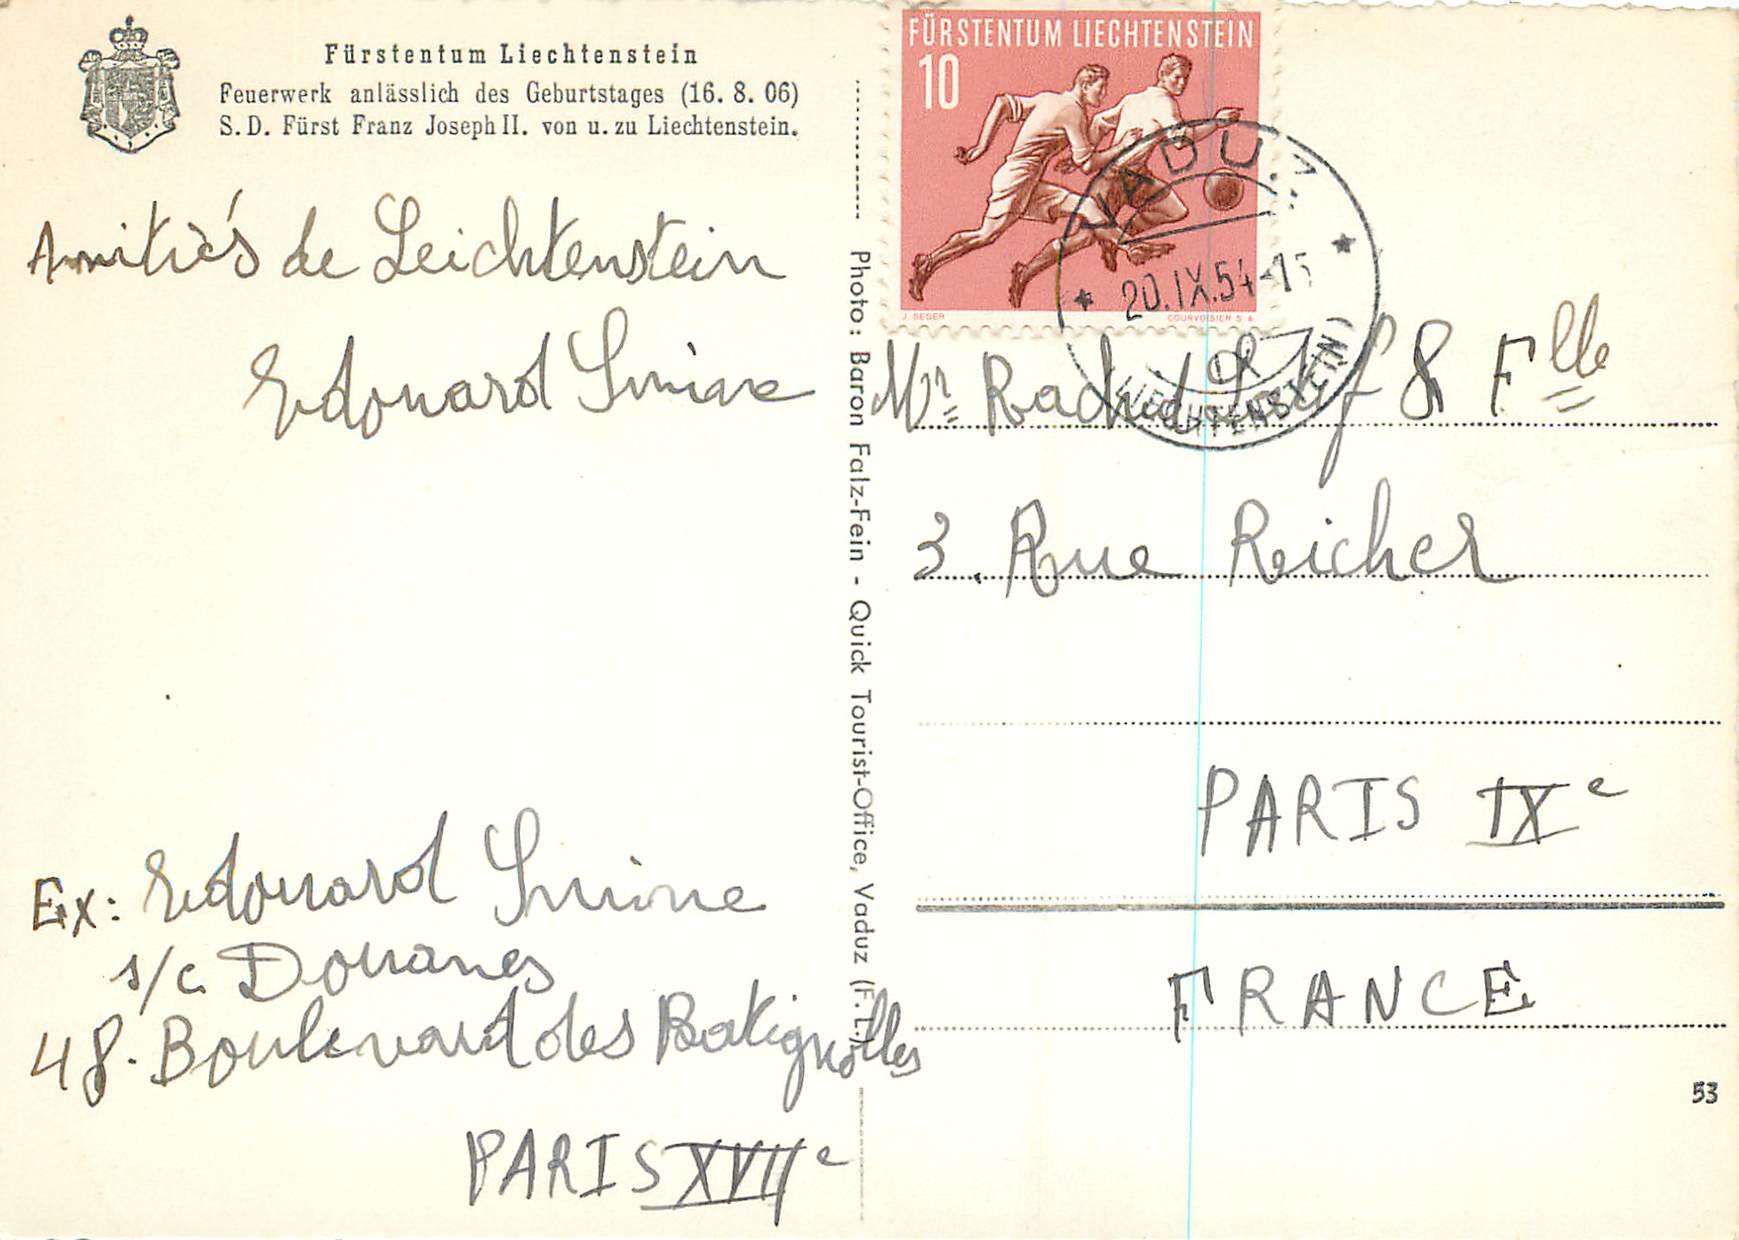 Fürstentum Liechtenstein
Feuerwerk anlässlich des Geburtstages (16. 8. 06)
S. D. Fürst Franz Joseph II. von u. zu Liechtenstein.
Amitiés de Leichtenstein
Edouard
Ex: Edouard
s/c Douanes
48. Boulevard des Batignolles
PARIS XVIIe
Photo: Baron Falz-Fein - Quick Tourist-Office, Vaduz (F. L.)
FÜRSTENTUM LIECHTENSTEIN
10
J. SEGER
COURVOISIER S. A
VADUZ
20.IX.54-15
(LIECHTENSTEIN)
Mr & Flle
3. Rue Richer
PARIS IXe
FRANCE
53